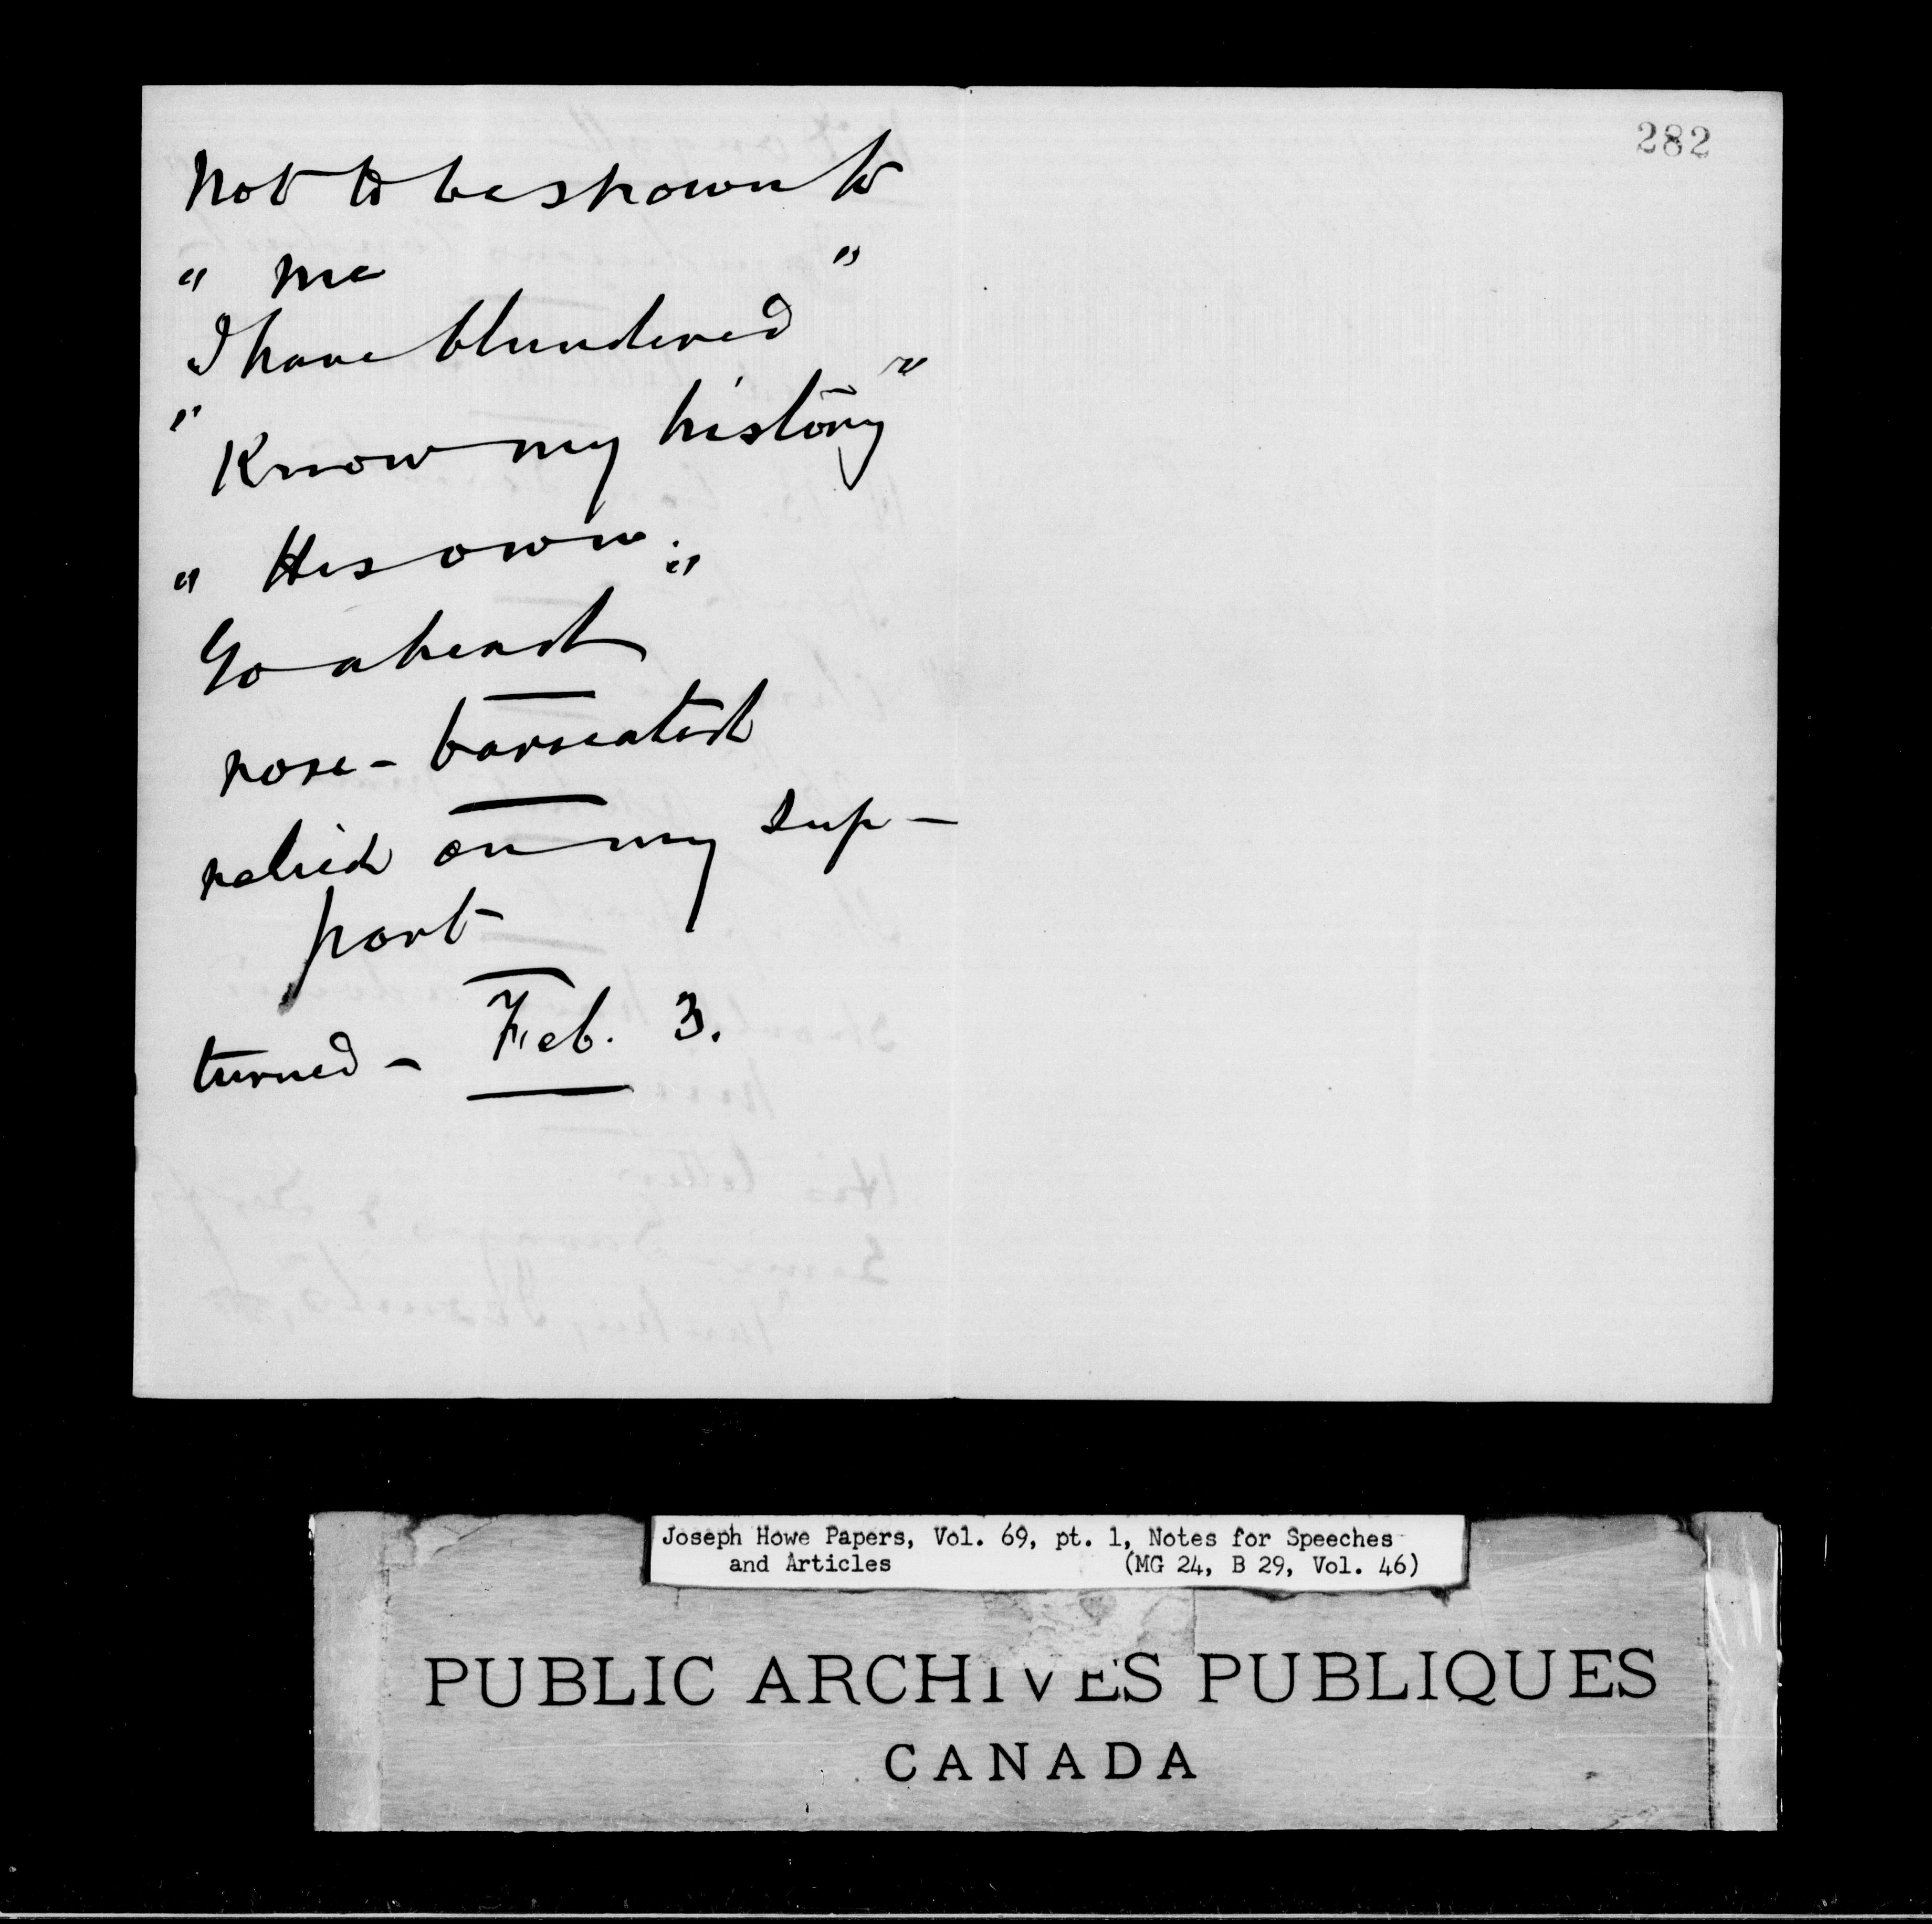 282
Not to be shown to
" me "
I have blundered
" Know my history "
" His own. "
Go ahead
rose -
relied on my sup-
port
turned - Feb. 3.
Joseph Howe Papers, Vol. 69, pt. 1, Notes for Speeches
and Articles (MG 24, B 29, Vol. 46)
PUBLIC ARCHIVES PUBLIQUES
CANADA